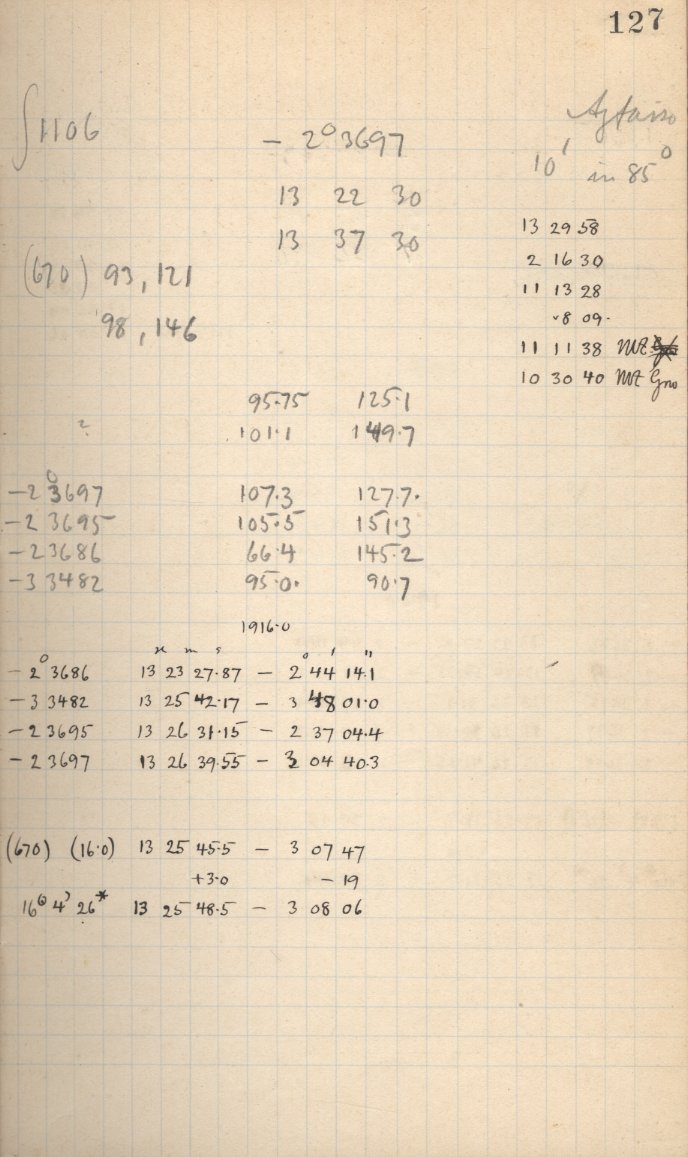 127
∫1106
- 2° 3697
10' in 85°
13 22 30
13 37 30
13 29 58
2 16 30
11 13 28
8 09.
11 11 38 MZ
10 30 40 MZ
(670) 93, 121
98, 146
95.75 125.1
? 101.1 149.7
-2° 3697 107.3 127.7.
-2 3695 105.5 151.3
-2 3686 66.4 145.2
-3 3482 95.0. 90.7
1916.0
h m s ° ' "
-2° 3686 13 23 27.87 - 2 44 14.1
-3 3482 13 25 42.17 - 3 48 01.0
-2 3695 13 26 31.15 - 2 37 04.4
-2 3697 13 26 39.55 - 3 04 40.3
(670) (16.0) 13 25 45.5 - 3 07 47
+3.0 - 19
16ᵒ 4ʾ 26* 13 25 48.5 - 3 08 06